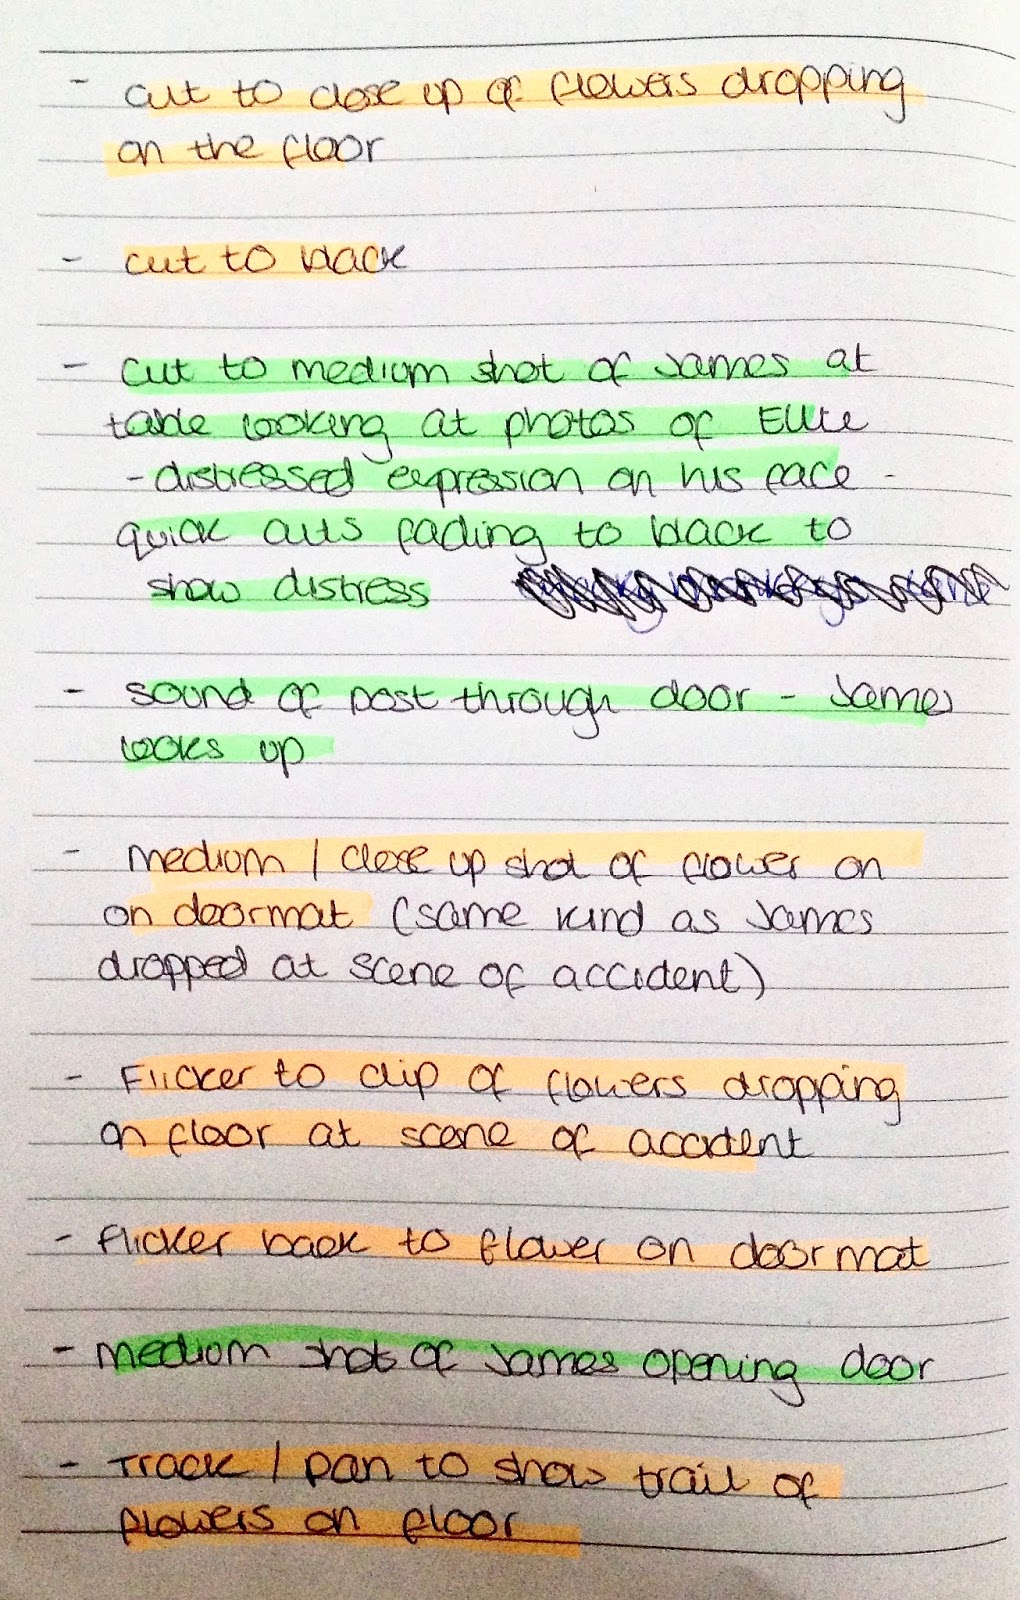 - cut to close up of flowers dropping
on the floor
- cut to black
- cut to medium shot of James at
table looking at photos of Ellie
- distressed expression on his face -
quick cuts fading to black to
show distress
- sound of post through door - James
looks up
- medium / close up shot of flower on
on doormat (same kind as James
dropped at scene of accident)
- Flicker to clip of flowers dropping
on floor at scene of accident
- flicker back to flower on doormat
- medium shot of James opening door
- Track / pan to show trail of
flowers on floor